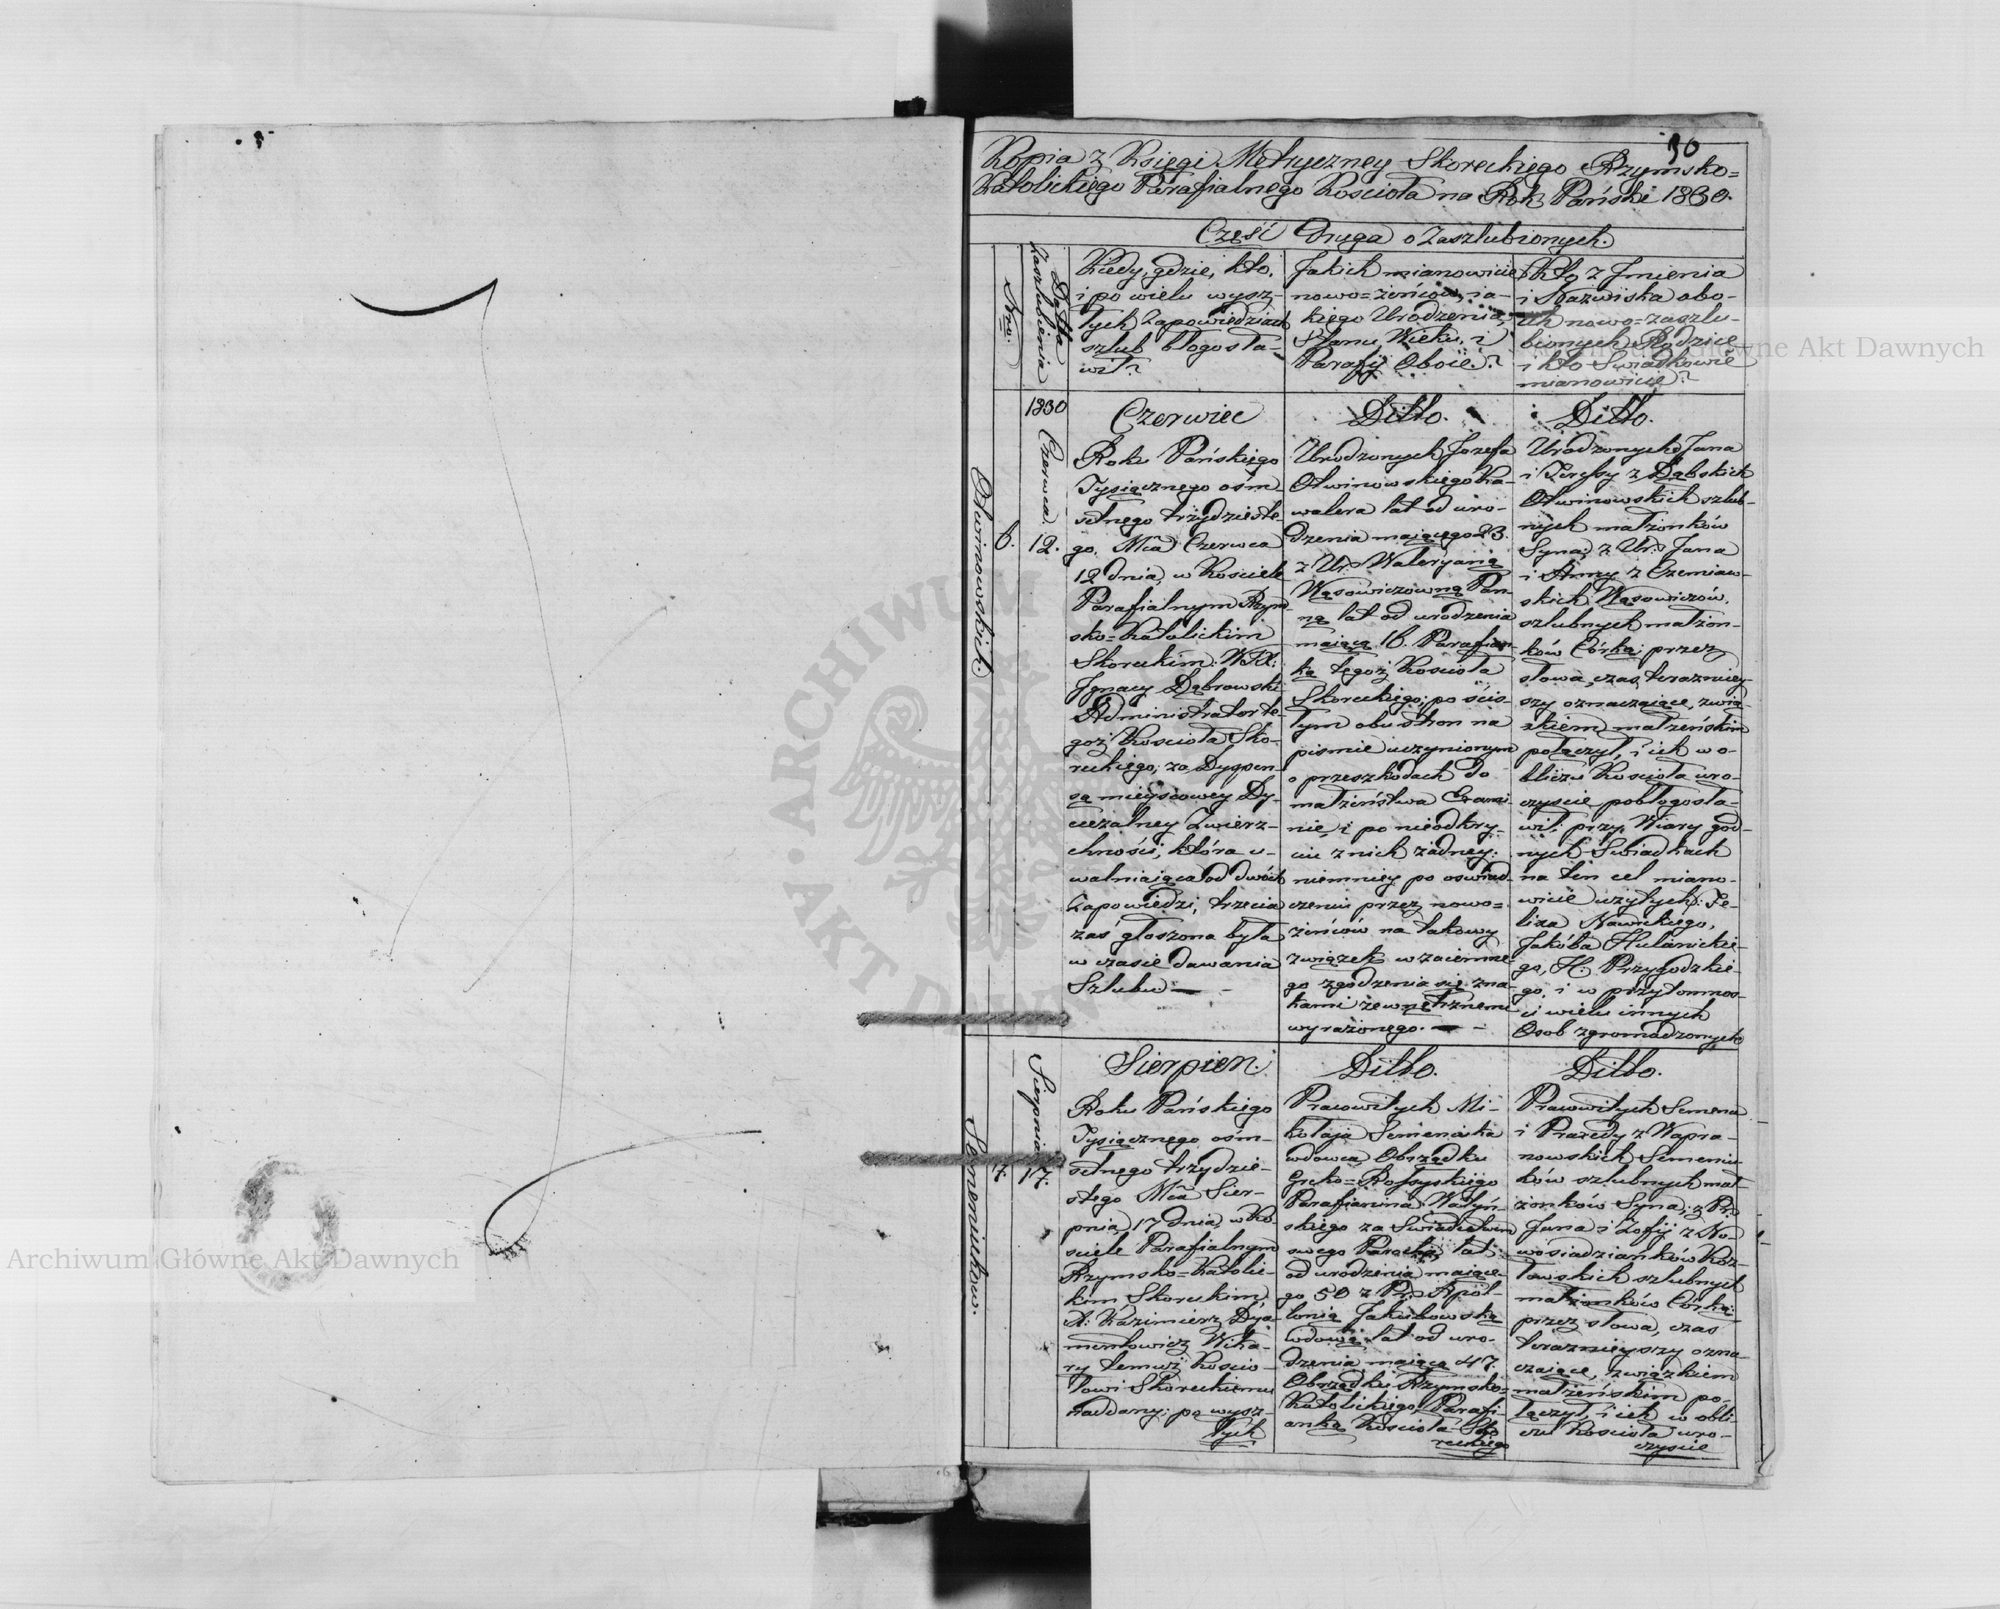 30
Kopia z Księgi Metryczney Skoreckiego Rzymsko=
Katolickiego Parafialnego Kościoła na Rok Pański 1830.
Część Druga o Zaszlubionych.
Datta Zaszlubienia
Kiedy, gdzie, kto,
i po wielu wysz-
łych Zapowiedziach
szlub błogosła-
wił?
Jakich mianowicie
nowo=żeńców, ia-
kiego Urodzenia,
Stanu, Wieku, i
Parafij Oboie?
Kto z Jmienia
i Nazwiska obo-
ich nowo=zaszlu-
bionych Rodzice
i kto Swiadkowie
mianowicie?
Otwinowskich
6.
1830 Czerwca
12.
Czerwiec
Roku Pańskiego
Tysiącznego ośm
setnego trzydzieste-
go, Mca Czerwca
12 dnia, w Kościele
Parafialnym Rzym-
sko=Katolickim
Skoreckim W.JX:
Jgnacy Dąbrowski
Administrator te-
goż Kościoła Sko-
reckiego, za Dyspen-
są mieyscowey Dy-
ecezalney Zwierz-
chności, która u-
walniaiąca od dwóch
Zapowiedzi, trzecia
zaś głoszona była
w czasie dawania
Szlubu.
Ditto.
Urodzonych Jozefa
Otwinowskiego Ka-
walera lat od uro-
dzenia maiącego 23.
z Ur: Waleryaną
Wąsowiczówną Pan-
ną lat od urodzenia
maiącą 16. Parafian-
ką tegoż Kościoła
Skoreckiego; po ścis-
łym obu stron na
pismie uczynionym
o przeszkodach do
matżeństwa Exami-
nie, i po nieodkry-
ciu z nich żadney:
niemniey po oswiad-
czeniu przez nowo=
żeńców na takowy
związek wzaiemne-
go zgodzenia się zna-
kami zewnętrznemi
wyrażonego.
Ditto.
Urodzonych Jana
i Teressy z Dąbskich
Otwinowskich szlub-
nych matżonków
Syna; z Ur: Jana
i Anny z Czerniaw-
skich Wąsowiczów,
szlubnych matżon-
ków Córką; przez
słowa, czas terazniey-
szy oznaczaiące, zwią-
zkiem matżeńskim
połączył, i ich w o-
bliczu Kościoła uro-
czyście pobłogosła-
wił; przy Wiary god-
nych Swiadkach
na ten cel miano-
wicie użytych: Fe-
lixa Nawickiego,
Jakóba Hulanickie-
go, H. Przygodzkie-
go, i w przytomnos-
ci wielu innych
Osob zgromadzonych.
Semeniuków.
7.
Sierpnia
17.
Sierpień.
Roku Pańskiego
Tysiącznego ośm-
setnego trzydzie-
stego Mca Sier-
pnia, 17 dnia, w Ko-
ściele Parafialnym
Rzymsko=Katolic-
kim Skoreckim,
X: Kazimierz Dya-
mentowicz Wika-
ry temuż Kościo-
łowi Skoreckiemu
naddany; po wysz-
łych
Ditto.
Pracowitych Mi-
kołaja Semeniuka
wdowca, Obrządku
Greko=Rossyyskiego
Parafianina Wołyń-
skiego za Swiadectwem
swego Parocha, lat
od urodzenia maiące-
go 50 z Pr: Apol-
lonią Jakubowską
wdową, lat od uro-
dzenia maiącą 47.
Obrządku Rzymsko=
Katolickiego, Parafi-
anką Kościoła Sko
reckiego
Ditto.
Pracowitych Semena
i Praxedy z Wapra-
nowskich Semeniu-
ków szlubnych mat-
żonków Syna; z Pr:
Jana i Zofij z No-
wosiadzianków Koz-
łowskich szlubnych
matżonków Córką;
przez słowa, czas
teraznieyszy ozna-
czaiące, związkiem
matżeńskim po-
łączył, i ich w obli-
czu Kościoła uro-
czyscie
Archiwum Główne Akt Dawnych
Archiwum Główne Akt Dawnych